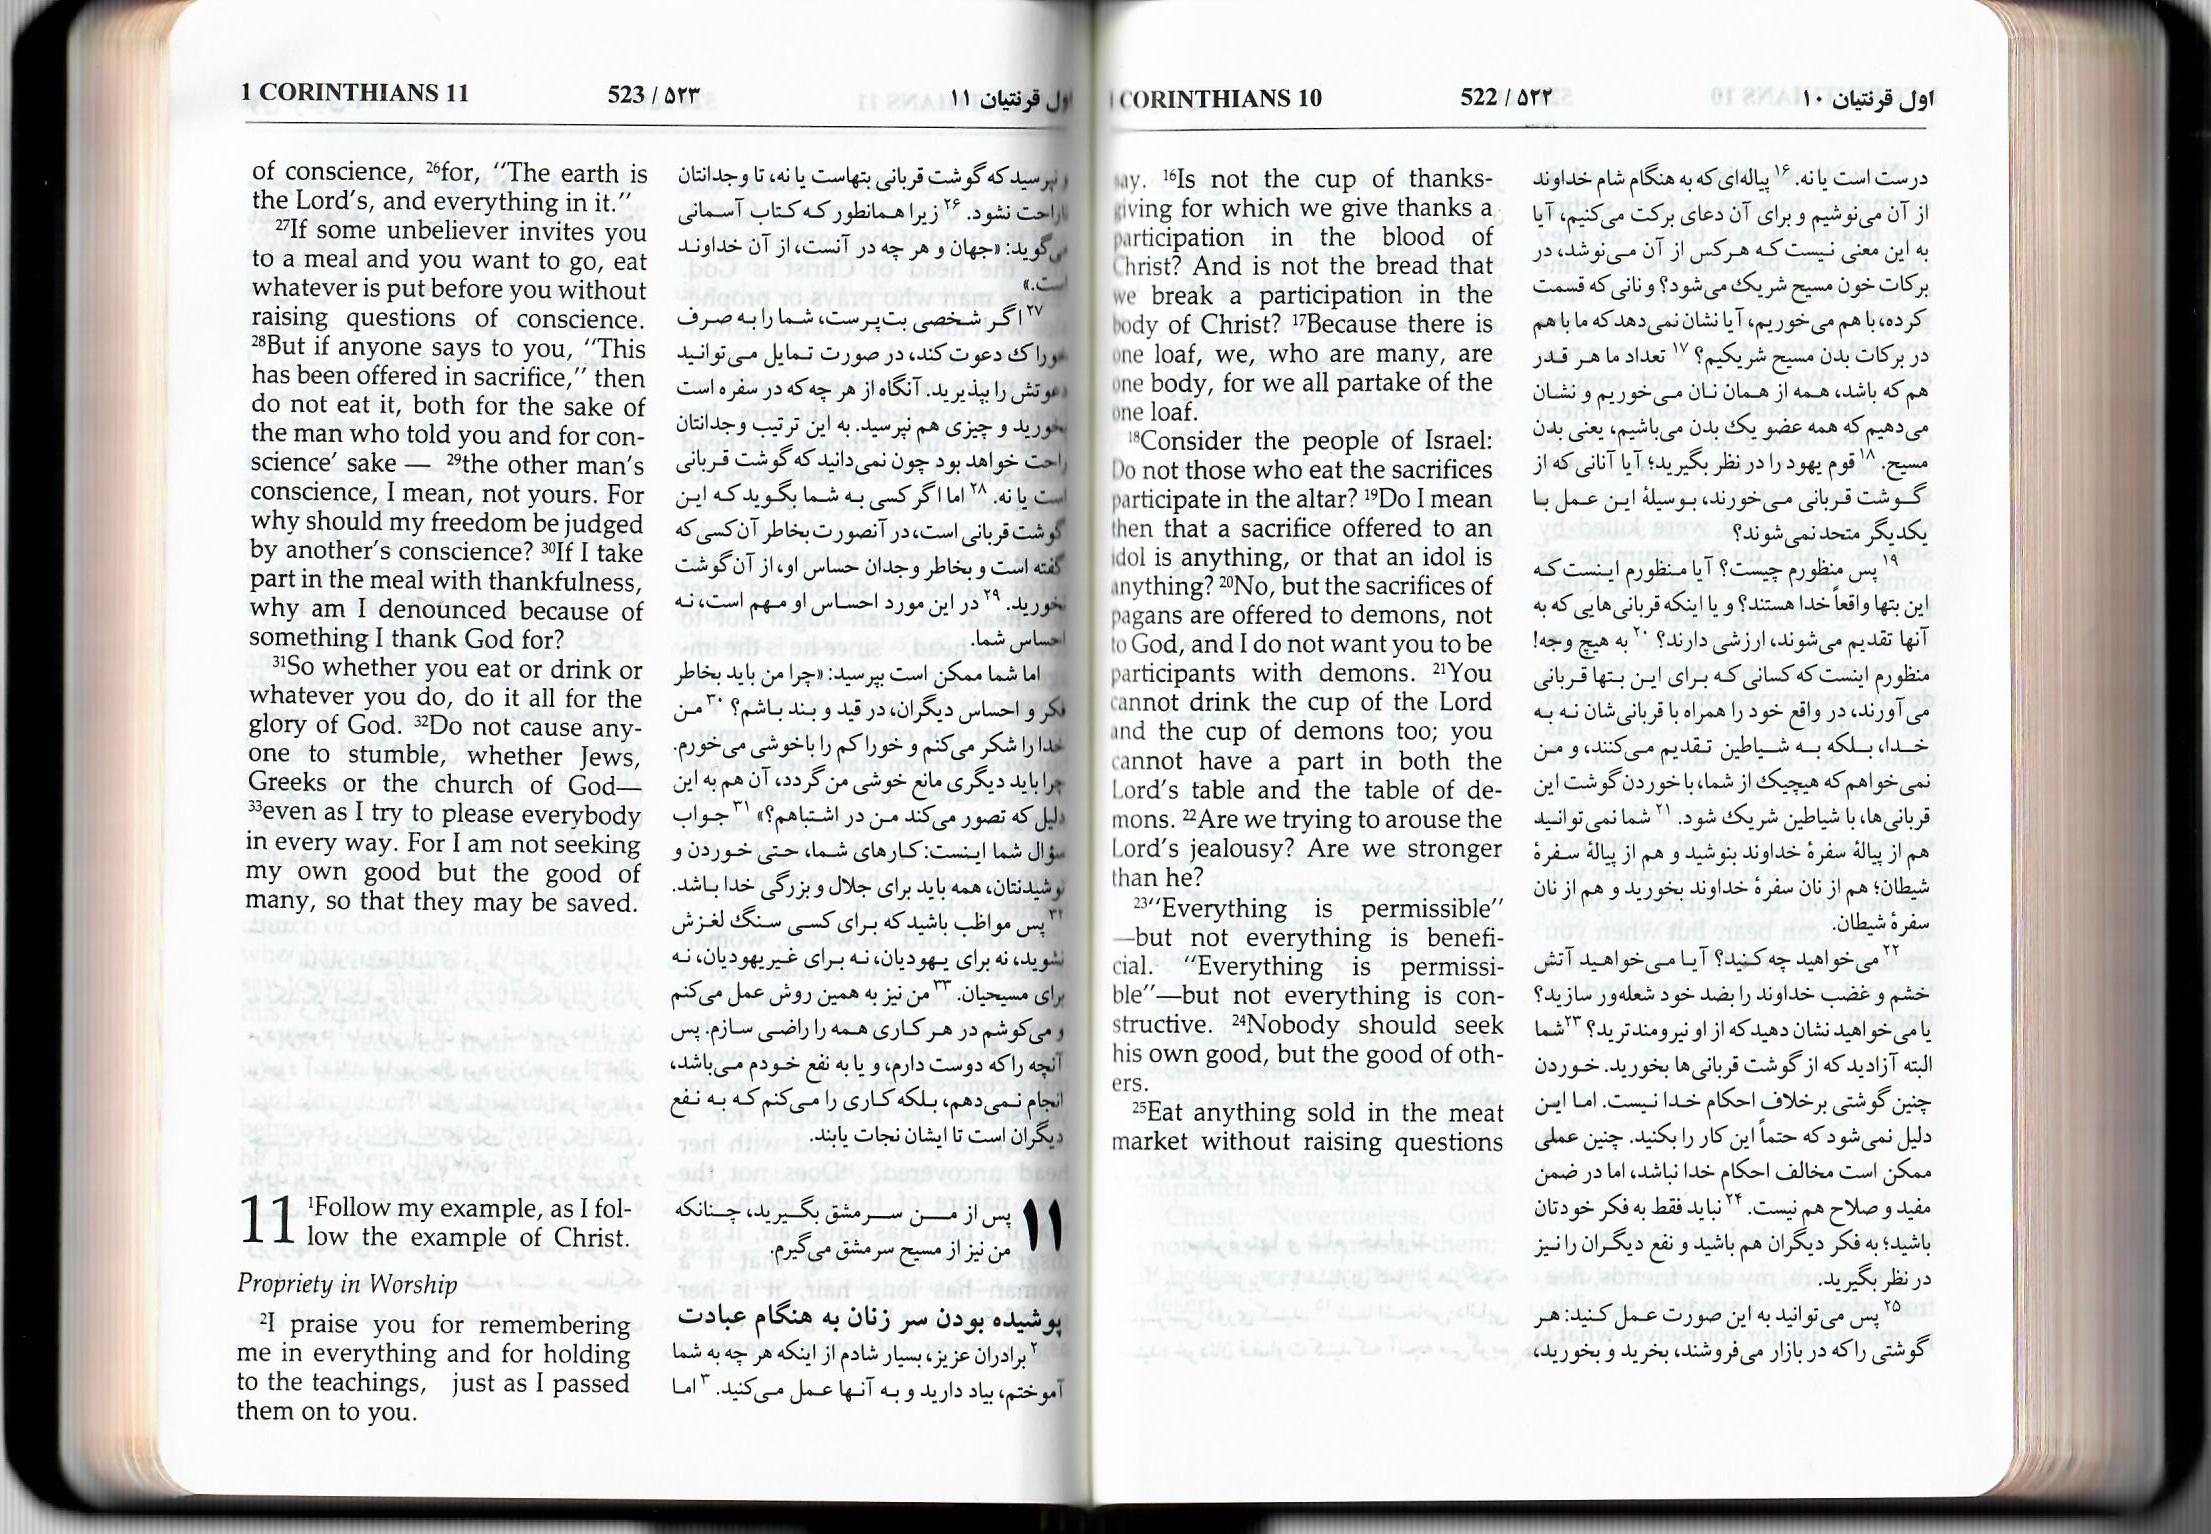 1 CORINTHIANS 10
522 / ۵۲۲
اول قرنتیان ۱۰
say. 16Is not the cup of thanks-
giving for which we give thanks a
participation in the blood of
Christ? And is not the bread that
we break a participation in the
body of Christ? 17Because there is
one loaf, we, who are many, are
one body, for we all partake of the
one loaf.
18Consider the people of Israel:
Do not those who eat the sacrifices
participate in the altar? 19Do I mean
then that a sacrifice offered to an
idol is anything, or that an idol is
anything? 20No, but the sacrifices of
pagans are offered to demons, not
to God, and I do not want you to be
participants with demons. 21You
cannot drink the cup of the Lord
and the cup of demons too; you
cannot have a part in both the
Lord's table and the table of de-
mons. 22Are we trying to arouse the
Lord's jealousy? Are we stronger
than he?
23“Everything is permissible”
—but not everything is benefi-
cial. “Everything is permissi-
ble”—but not everything is con-
structive. 24Nobody should seek
his own good, but the good of oth-
ers.
25Eat anything sold in the meat
market without raising questions
درست است یا نه. ۱۶ پیاله‌ای که به هنگام شام خداوند
از آن می‌نوشیم و برای آن دعای برکت می‌کنیم، آیا
به این معنی نیست که هرکس از آن می‌نوشد، در
برکات خون مسیح شریک می‌شود؟ و نانی که قسمت
کرده، با هم می‌خوریم، آیا نشان نمی‌دهد که ما با هم
در برکات بدن مسیح شریکیم؟ ۱۷ تعداد ما هر قدر
هم که باشد، همه از همان نان می‌خوریم و نشان
می‌دهیم که همه عضو یک بدن می‌باشیم، یعنی بدن
مسیح. ۱۸ قوم یهود را در نظر بگیرید؛ آیا آنانی که از
گوشت قربانی می‌خورند، بوسیلهٔ این عمل با
یکدیگر متحد نمی‌شوند؟
۱۹ پس منظورم چیست؟ آیا منظورم اینست که
این بتها واقعاً خدا هستند؟ و یا اینکه قربانی‌هایی که به
آنها تقدیم می‌شوند، ارزشی دارند؟ ۲۰ به هیچ وجه!
منظورم اینست که کسانی که برای این بتها قربانی
می‌آورند، در واقع خود را همراه با قربانی‌شان نه به
خدا، بلکه به شیاطین تقدیم می‌کنند، و من
نمی‌خواهم که هیچیک از شما، با خوردن گوشت این
قربانی‌ها، با شیاطین شریک شود. ۲۱ شما نمی‌توانید
هم از پیالهٔ سفرهٔ خداوند بنوشید و هم از پیالهٔ سفرهٔ
شیطان؛ هم از نان سفرهٔ خداوند بخورید و هم از نان
سفرهٔ شیطان.
۲۲ می‌خواهید چه کنید؟ آیا می‌خواهید آتش
خشم و غضب خداوند را بضد خود شعله‌ور سازید؟
یا می‌خواهید نشان دهید که از او نیرومندترید؟ ۲۳ شما
البته آزادید که از گوشت قربانی‌ها بخورید. خوردن
چنین گوشتی برخلاف احکام خدا نیست. اما این
دلیل نمی‌شود که حتماً این کار را بکنید. چنین عملی
ممکن است مخالف احکام خدا نباشد، اما در ضمن
مفید و صلاح هم نیست. ۲۴ نباید فقط به فکر خودتان
باشید؛ به فکر دیگران هم باشید و نفع دیگران را نیز
در نظر بگیرید.
۲۵ پس می‌توانید به این صورت عمل کنید: هر
گوشتی را که در بازار می‌فروشند، بخرید و بخورید،
1 CORINTHIANS 11
523 / ۵۲۳
اول قرنتیان ۱۱
of conscience, 26for, “The earth is
the Lord's, and everything in it.”
27If some unbeliever invites you
to a meal and you want to go, eat
whatever is put before you without
raising questions of conscience.
28But if anyone says to you, “This
has been offered in sacrifice,” then
do not eat it, both for the sake of
the man who told you and for con-
science' sake — 29the other man's
conscience, I mean, not yours. For
why should my freedom be judged
by another's conscience? 30If I take
part in the meal with thankfulness,
why am I denounced because of
something I thank God for?
31So whether you eat or drink or
whatever you do, do it all for the
glory of God. 32Do not cause any-
one to stumble, whether Jews,
Greeks or the church of God—
33even as I try to please everybody
in every way. For I am not seeking
my own good but the good of
many, so that they may be saved.
11 1Follow my example, as I fol-
low the example of Christ.
Propriety in Worship
2I praise you for remembering
me in everything and for holding
to the teachings, just as I passed
them on to you.
و نپرسید که گوشت قربانی بتهاست یا نه، تا وجدانتان
ناراحت نشود. ۲۶ زیرا همانطور که کتاب آسمانی
می‌گوید: «جهان و هر چه در آنست، از آن خداوند
است.»
۲۷ اگر شخصی بت‌پرست، شما را به صرف
خوراک دعوت کند، در صورت تمایل می‌توانید
دعوتش را بپذیرید. آنگاه از هر چه که در سفره است
بخورید و چیزی هم نپرسید. به این ترتیب وجدانتان
راحت خواهد بود چون نمی‌دانید که گوشت قربانی
است یا نه. ۲۸ اما اگر کسی به شما بگوید که این
گوشت قربانی است، در آنصورت بخاطر آن کسی که
گفته است و بخاطر وجدان حساس او، از آن گوشت
نخورید. ۲۹ در این مورد احساس او مهم است، نه
احساس شما.
اما شما ممکن است بپرسید: «چرا من باید بخاطر
فکر و احساس دیگران، در قید و بند باشم؟ ۳۰ من
خدا را شکر می‌کنم و خوراکم را با خوشی می‌خورم.
چرا باید دیگری مانع خوشی من گردد، آن هم به این
دلیل که تصور می‌کند من در اشتباهم؟» ۳۱ جواب
سؤال شما اینست: کارهای شما، حتی خوردن و
نوشیدنتان، همه باید برای جلال و بزرگی خدا باشد.
۳۲ پس مواظب باشید که برای کسی سنگ لغزش
نشوید، نه برای یهودیان، نه برای غیریهودیان، نه
برای مسیحیان. ۳۳ من نیز به همین روش عمل می‌کنم
و می‌کوشم در هر کاری همه را راضی سازم. پس
آنچه را که دوست دارم، و یا به نفع خودم می‌باشد،
انجام نمی‌دهم، بلکه کاری را می‌کنم که به نفع
دیگران است تا ایشان نجات یابند.
۱۱ پس از من سرمشق بگیرید، چنانکه
من نیز از مسیح سرمشق می‌گیرم.
پوشیده بودن سر زنان به هنگام عبادت
۲ برادران عزیز، بسیار شادم از اینکه هر چه به شما
آموختم، بیاد دارید و به آنها عمل می‌کنید. ۳ اما